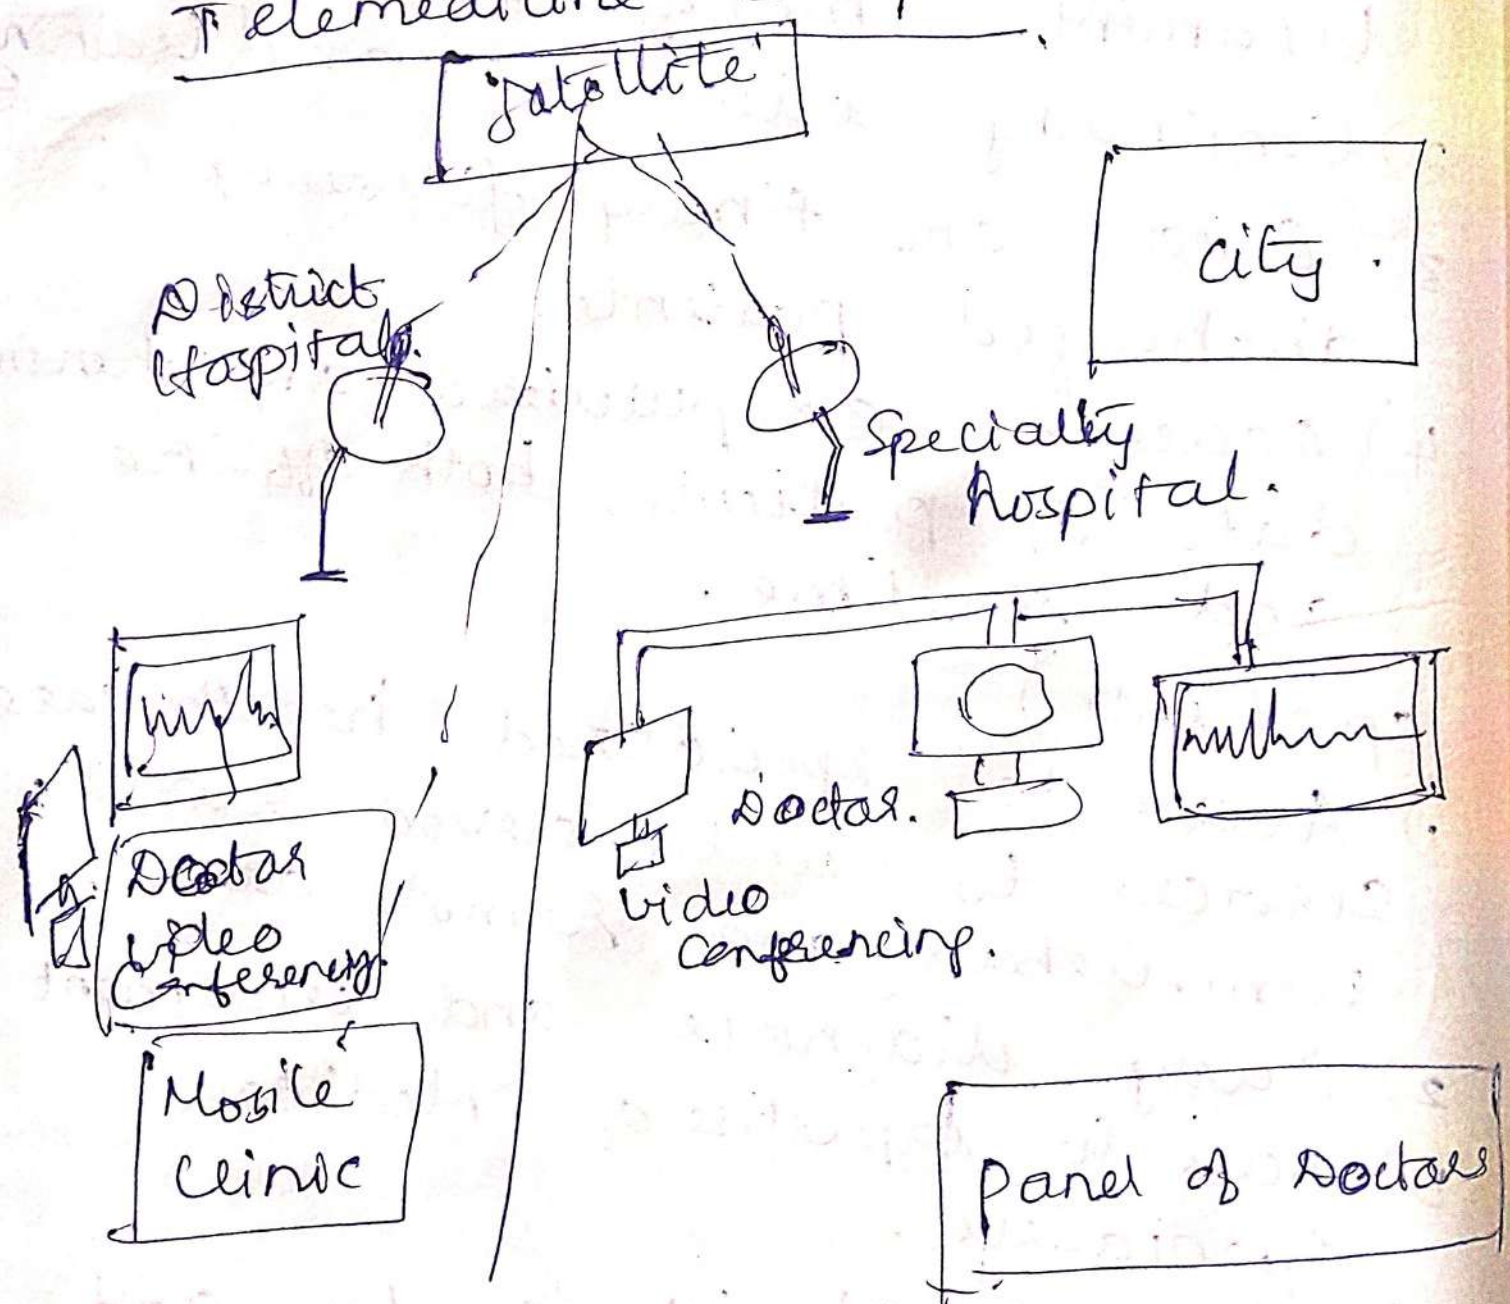 Telemedicine
Satellite
City.
District
Hospital.
Specialty
hospital.
Doctor.
Video
Conferencing.
Doctor
Video
Conferencing.
Mobile
Clinic
Panel of Doctors